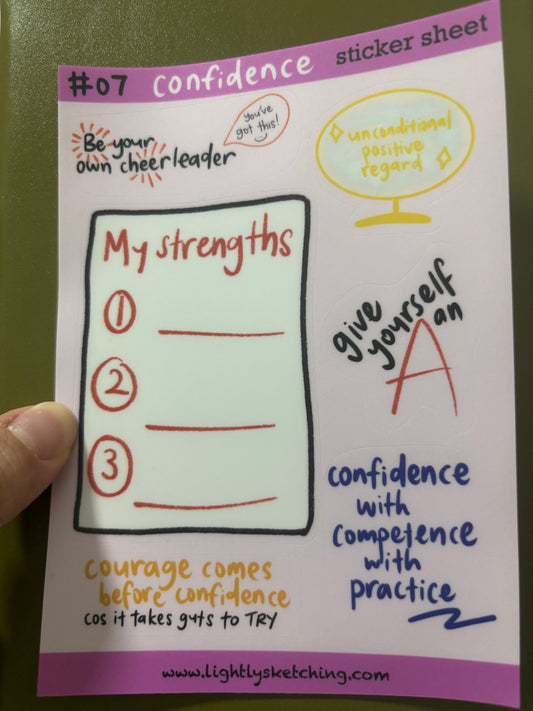 #07 confidence sticker sheet
Be your
own cheerleader
You've
got this!
unconditional
positive
regard
My strengths
1
2
3
give
yourself
an
A
confidence
with
competence
with
practice
courage comes
before confidence
cos it takes guts to TRY
www.lightlysketching.com